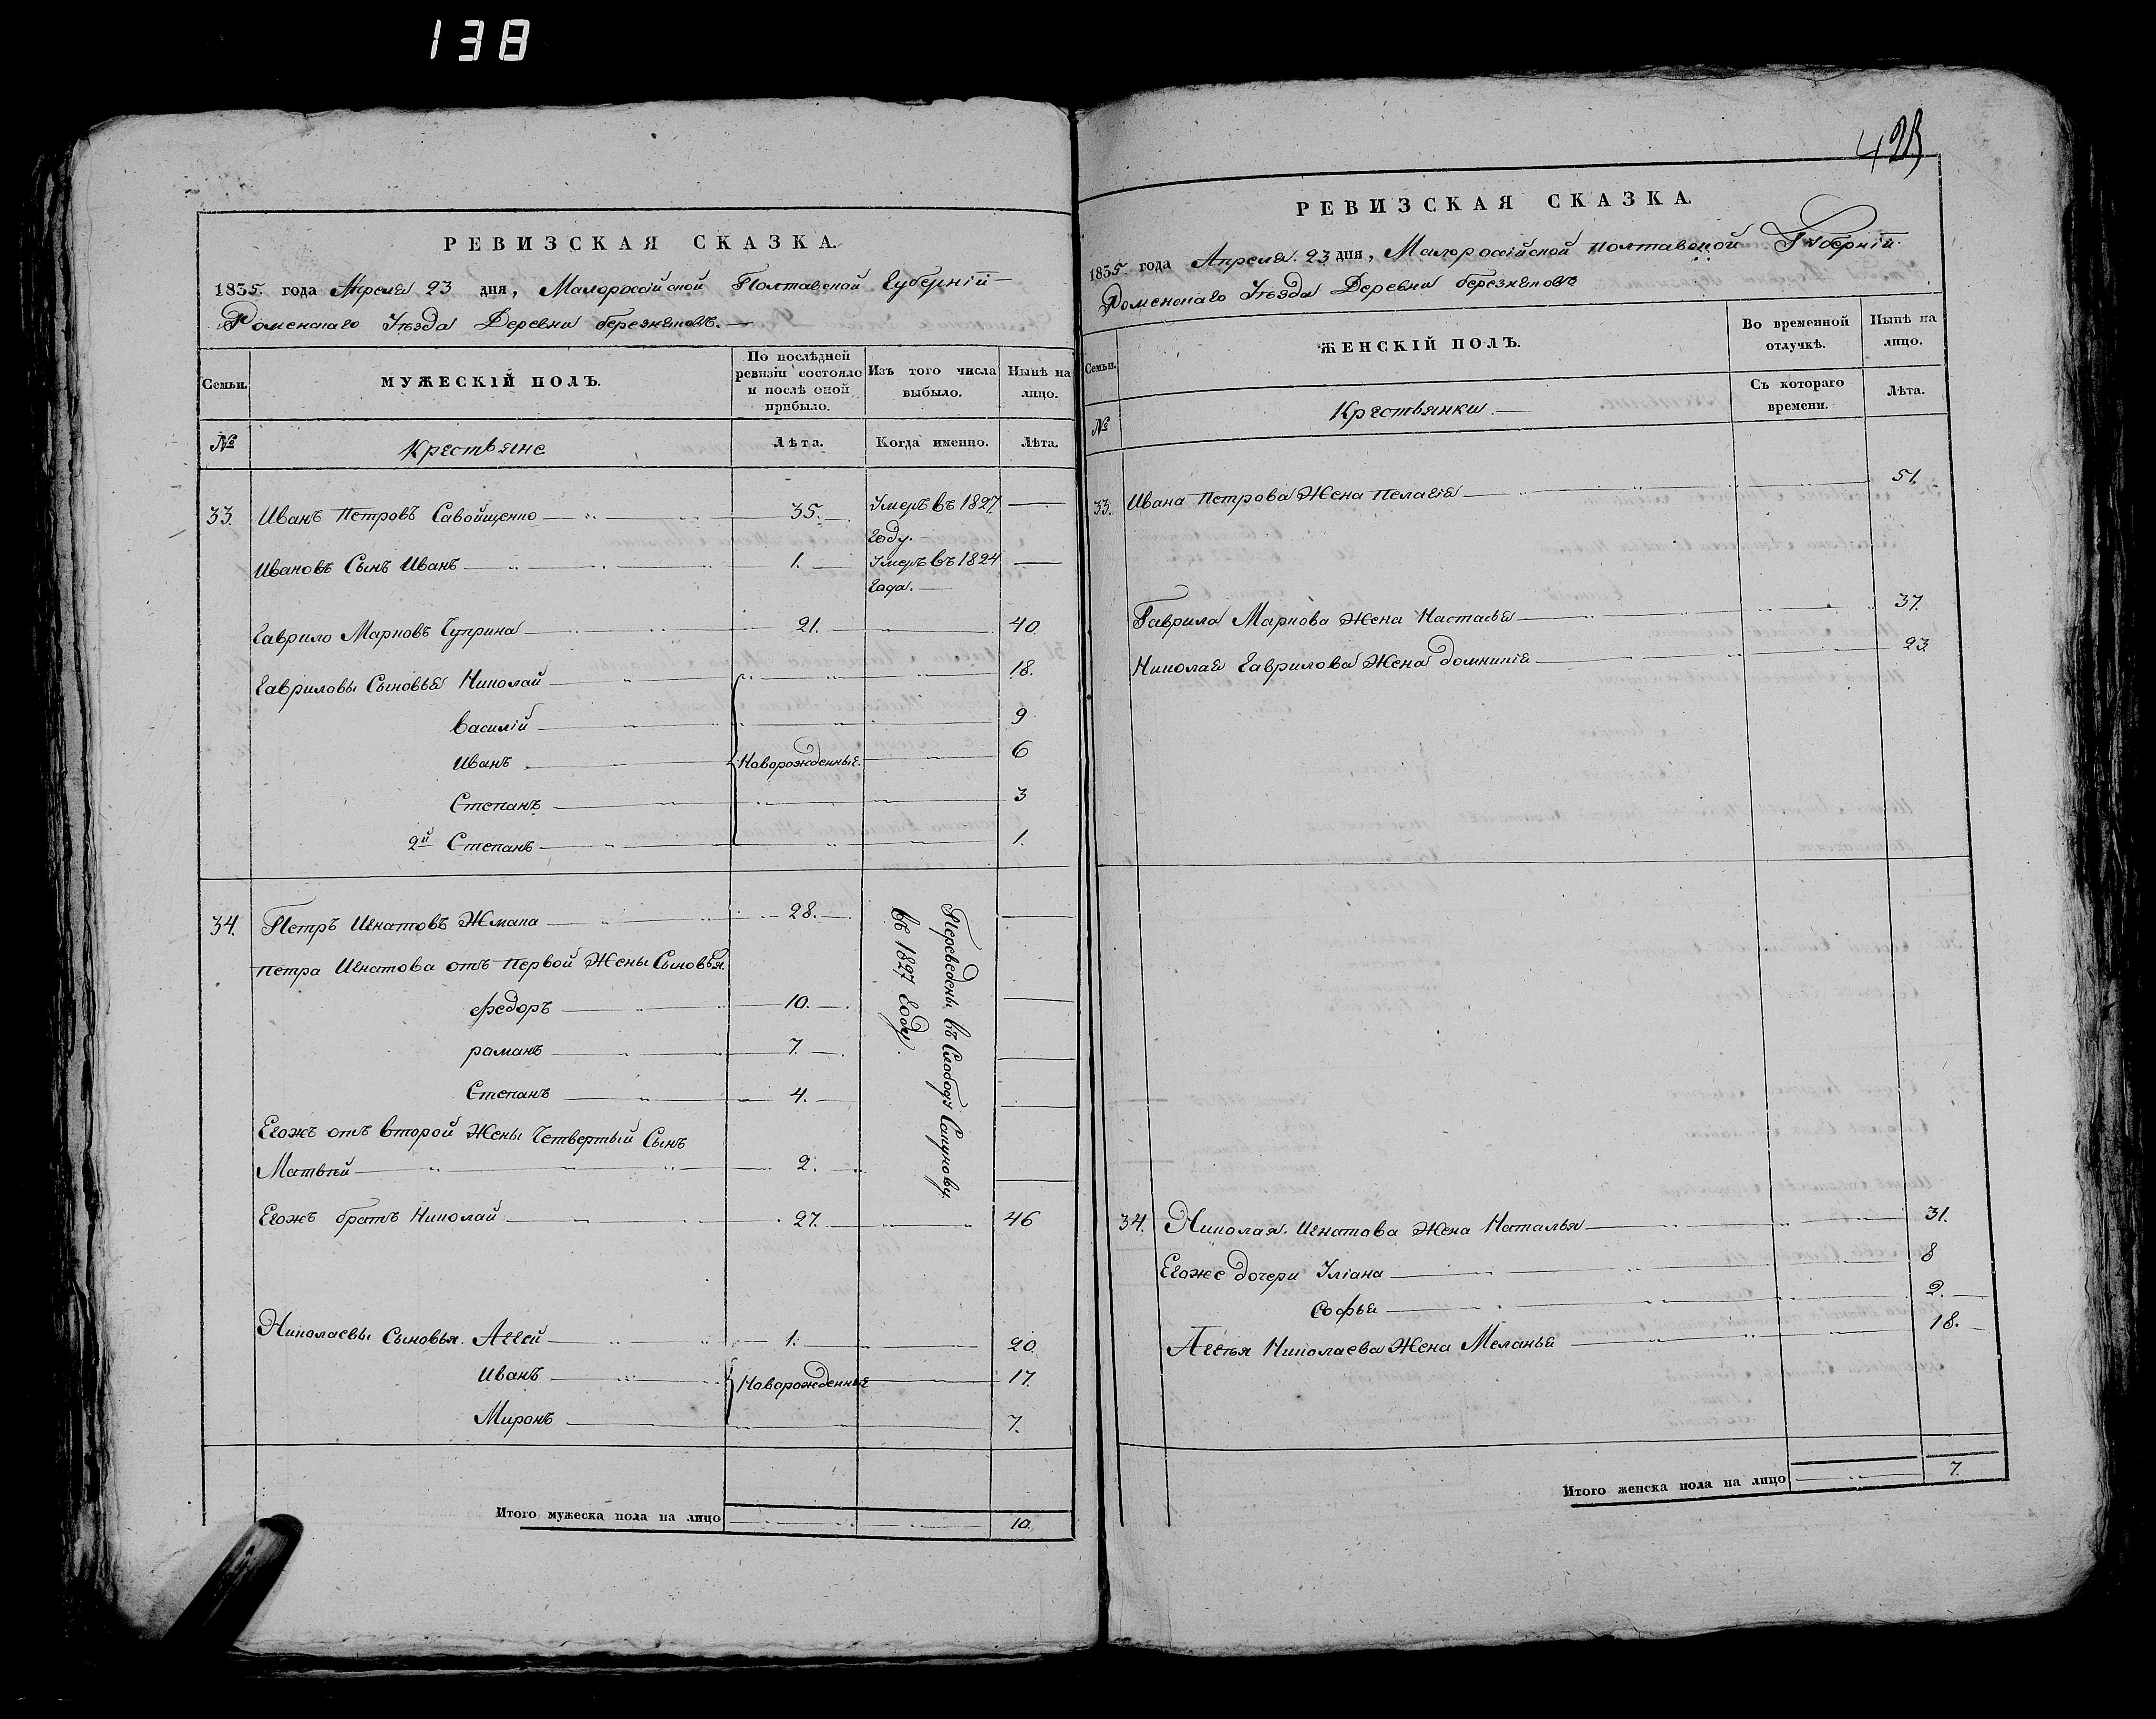 138
РЕВИЗСКАЯ СКАЗКА.
1835. года Апреля 23 дня, Малороссійской Полтавской Губерніи
Роменскаго Уѣзда Деревни березняковъ.
Семьи.
МУЖЕСКІЙ ПОЛЪ.
По послѣдней ревизіи состояло и послѣ оной прибыло.
Изъ того числа выбыло.
Нынѣ на лицо.
№
Крестьяне
Лѣта.
Когда именно.
Лѣта.
33. Иванъ Петровъ Савойщенко 35. Умеръ въ 1827
году.
Ивановъ Сынъ Иванъ 1. Умеръ въ 1824
года.
Гаврило Марковъ Чуприна 21. 40.
Гавриловы Сыновья Николай 18.
Василій 9
Иванъ Новорожденные. 6
Степанъ 3
2й Степанъ 1.
34. Петръ Игнатовъ Жмака 28.
Петра Игнатова отъ Первой Жены Сыновья
Федоръ 10.
Романъ 7.
Степанъ 4.
Переведены въ Слободу Сапунову
въ 1827 году.
Егожъ отъ второй Жены Четвертый Сынъ
Матвѣй 2.
Егожъ братъ Николай 27. 46
Николаевы Сыновья. Аггей 1. 20.
Иванъ Новорожденные 17.
Миронъ 7.
Итого мужеска пола на лицо 10.
423
РЕВИЗСКАЯ СКАЗКА.
1835. года Апреля. 23 дня, Малороссійской Полтавской Губерніи
Роменскаго Уѣзда Деревни березняковъ
Семьи.
ЖЕНСКІЙ ПОЛЪ.
Во временной отлучкѣ.
Нынѣ на лицо.
Съ котораго времени.
Лѣта.
№
Крестьянки
33. Ивана Петрова Жена Пелагія 51.
Гаврила Маркова Жена Настасья 37.
Николая Гаврилова Жена домникія 23.
34. Николая. Игнатова Жена Наталья 31.
Егоже дочери Уліана 8
Софья 2.
Аггѣя Николаева Жена Меланья 18.
Итого женска пола на лицо 7.